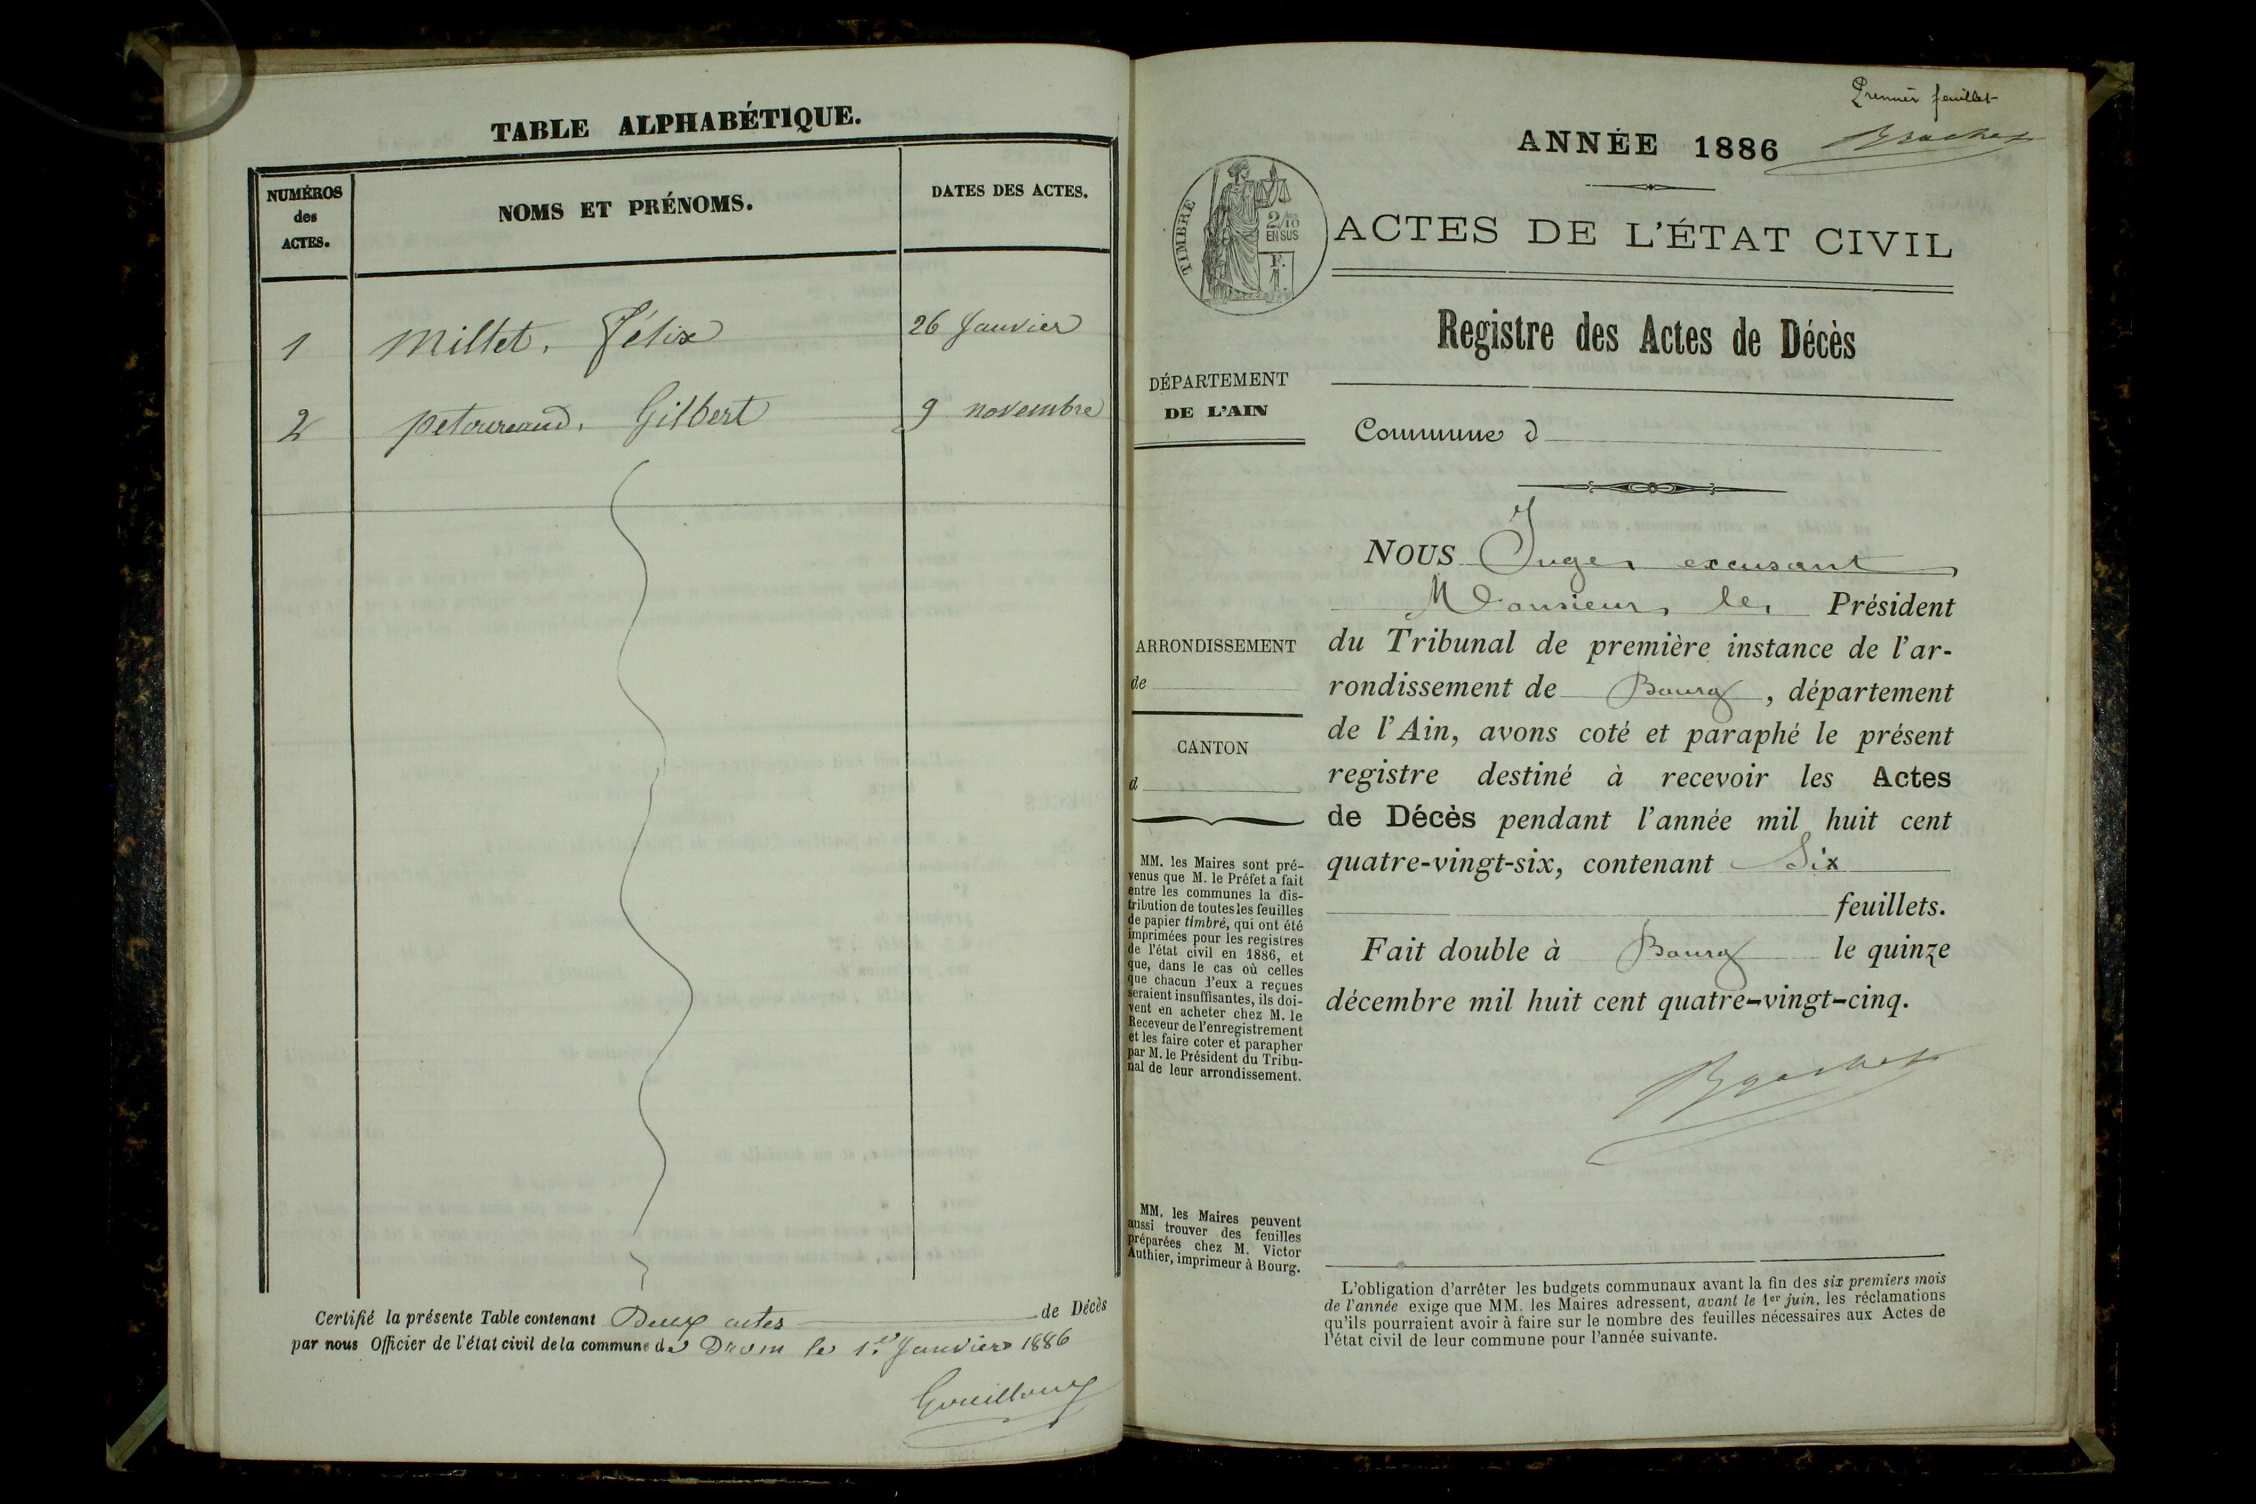 TABLE ALPHABÉTIQUE.
NUMÉROS
des
ACTES.
NOMS ET PRÉNOMS.
DATES DES ACTES.
1 Millet, Félix 26 Janvier
2 petoureaud, Gilbert 9 novembre
Certifié la présente Table contenant Deux actes de Décès
par nous Officier de l'état civil de la commune de Drom le 1er Janvier 1886
Gouilloux
Premier feuillet
Brochet
ANNÉE 1886
TIMBRE
2/10
EN SUS
F.
ACTES DE L'ÉTAT CIVIL
Registre des Actes de Décès
DÉPARTEMENT
DE L'AIN
Commune d
ARRONDISSEMENT
de
CANTON
d
MM. les Maires sont pré-
venus que M. le Préfet a fait
entre les communes la dis-
tribution de toutes les feuilles
de papier timbré, qui ont été
imprimées pour les registres
de l'état civil en 1886, et
que, dans le cas où celles
que chacun d'eux a reçues
seraient insuffisantes, ils doi-
vent en acheter chez M. le
Receveur de l'enregistrement
et les faire coter et parapher
par M. le Président du Tribu-
nal de leur arrondissement.
MM. les Maires peuvent
aussi trouver des feuilles
préparées chez M. Victor
Authier, imprimeur à Bourg.
NOUS Juge excusant
Monsieur le Président
du Tribunal de première instance de l'ar-
rondissement de Bourg, département
de l'Ain, avons coté et paraphé le présent
registre destiné à recevoir les Actes
de Décès pendant l'année mil huit cent
quatre-vingt-six, contenant Six
feuillets.
Fait double à Bourg le quinze
décembre mil huit cent quatre-vingt-cinq.
Brochet
L'obligation d'arrêter les budgets communaux avant la fin des six premiers mois
de l'année exige que MM. les Maires adressent, avant le 1er juin, les réclamations
qu'ils pourraient avoir à faire sur le nombre des feuilles nécessaires aux Actes de
l'état civil de leur commune pour l'année suivante.